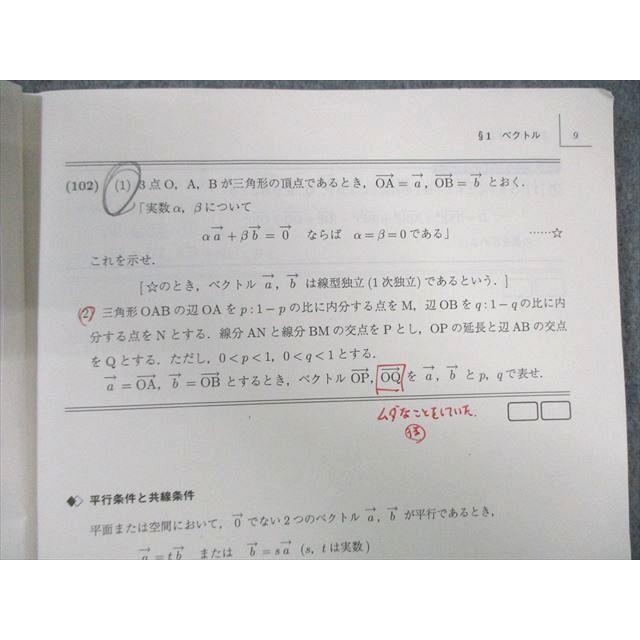 §1 ベクトル 9
(102) (1) 3点O，A，Bが三角形の頂点であるとき，$\overrightarrow{OA}=\vec{a}$，$\overrightarrow{OB}=\vec{b}$ とおく．
「実数α，βについて
$α\vec{a}+β\vec{b}=\vec{0}$ ならば α=β=0である」 ……☆
これを示せ．
[☆のとき，ベクトル $\vec{a}$，$\vec{b}$ は線型独立(1次独立)であるという．]
(2) 三角形OABの辺OAをp:1−pの比に内分する点をM，辺OBをq:1−qの比に内
分する点をNとする．線分ANと線分BMの交点をPとし，OPの延長と辺ABの交点
をQとする．ただし，0<p<1，0<q<1とする．
$\vec{a}=\overrightarrow{OA}$，$\vec{b}=\overrightarrow{OB}$ とするとき，ベクトル $\overrightarrow{OP}$，$\overrightarrow{OQ}$ を $\vec{a}$，$\vec{b}$ とp，qで表せ．
ムダなことをしていた．
◆◇ 平行条件と共線条件
平面または空間において，$\vec{0}$ でない2つのベクトル $\vec{a}$，$\vec{b}$ が平行であるとき，
$\vec{a}=t\vec{b}$ または $\vec{b}=s\vec{a}$ (s，tは実数)